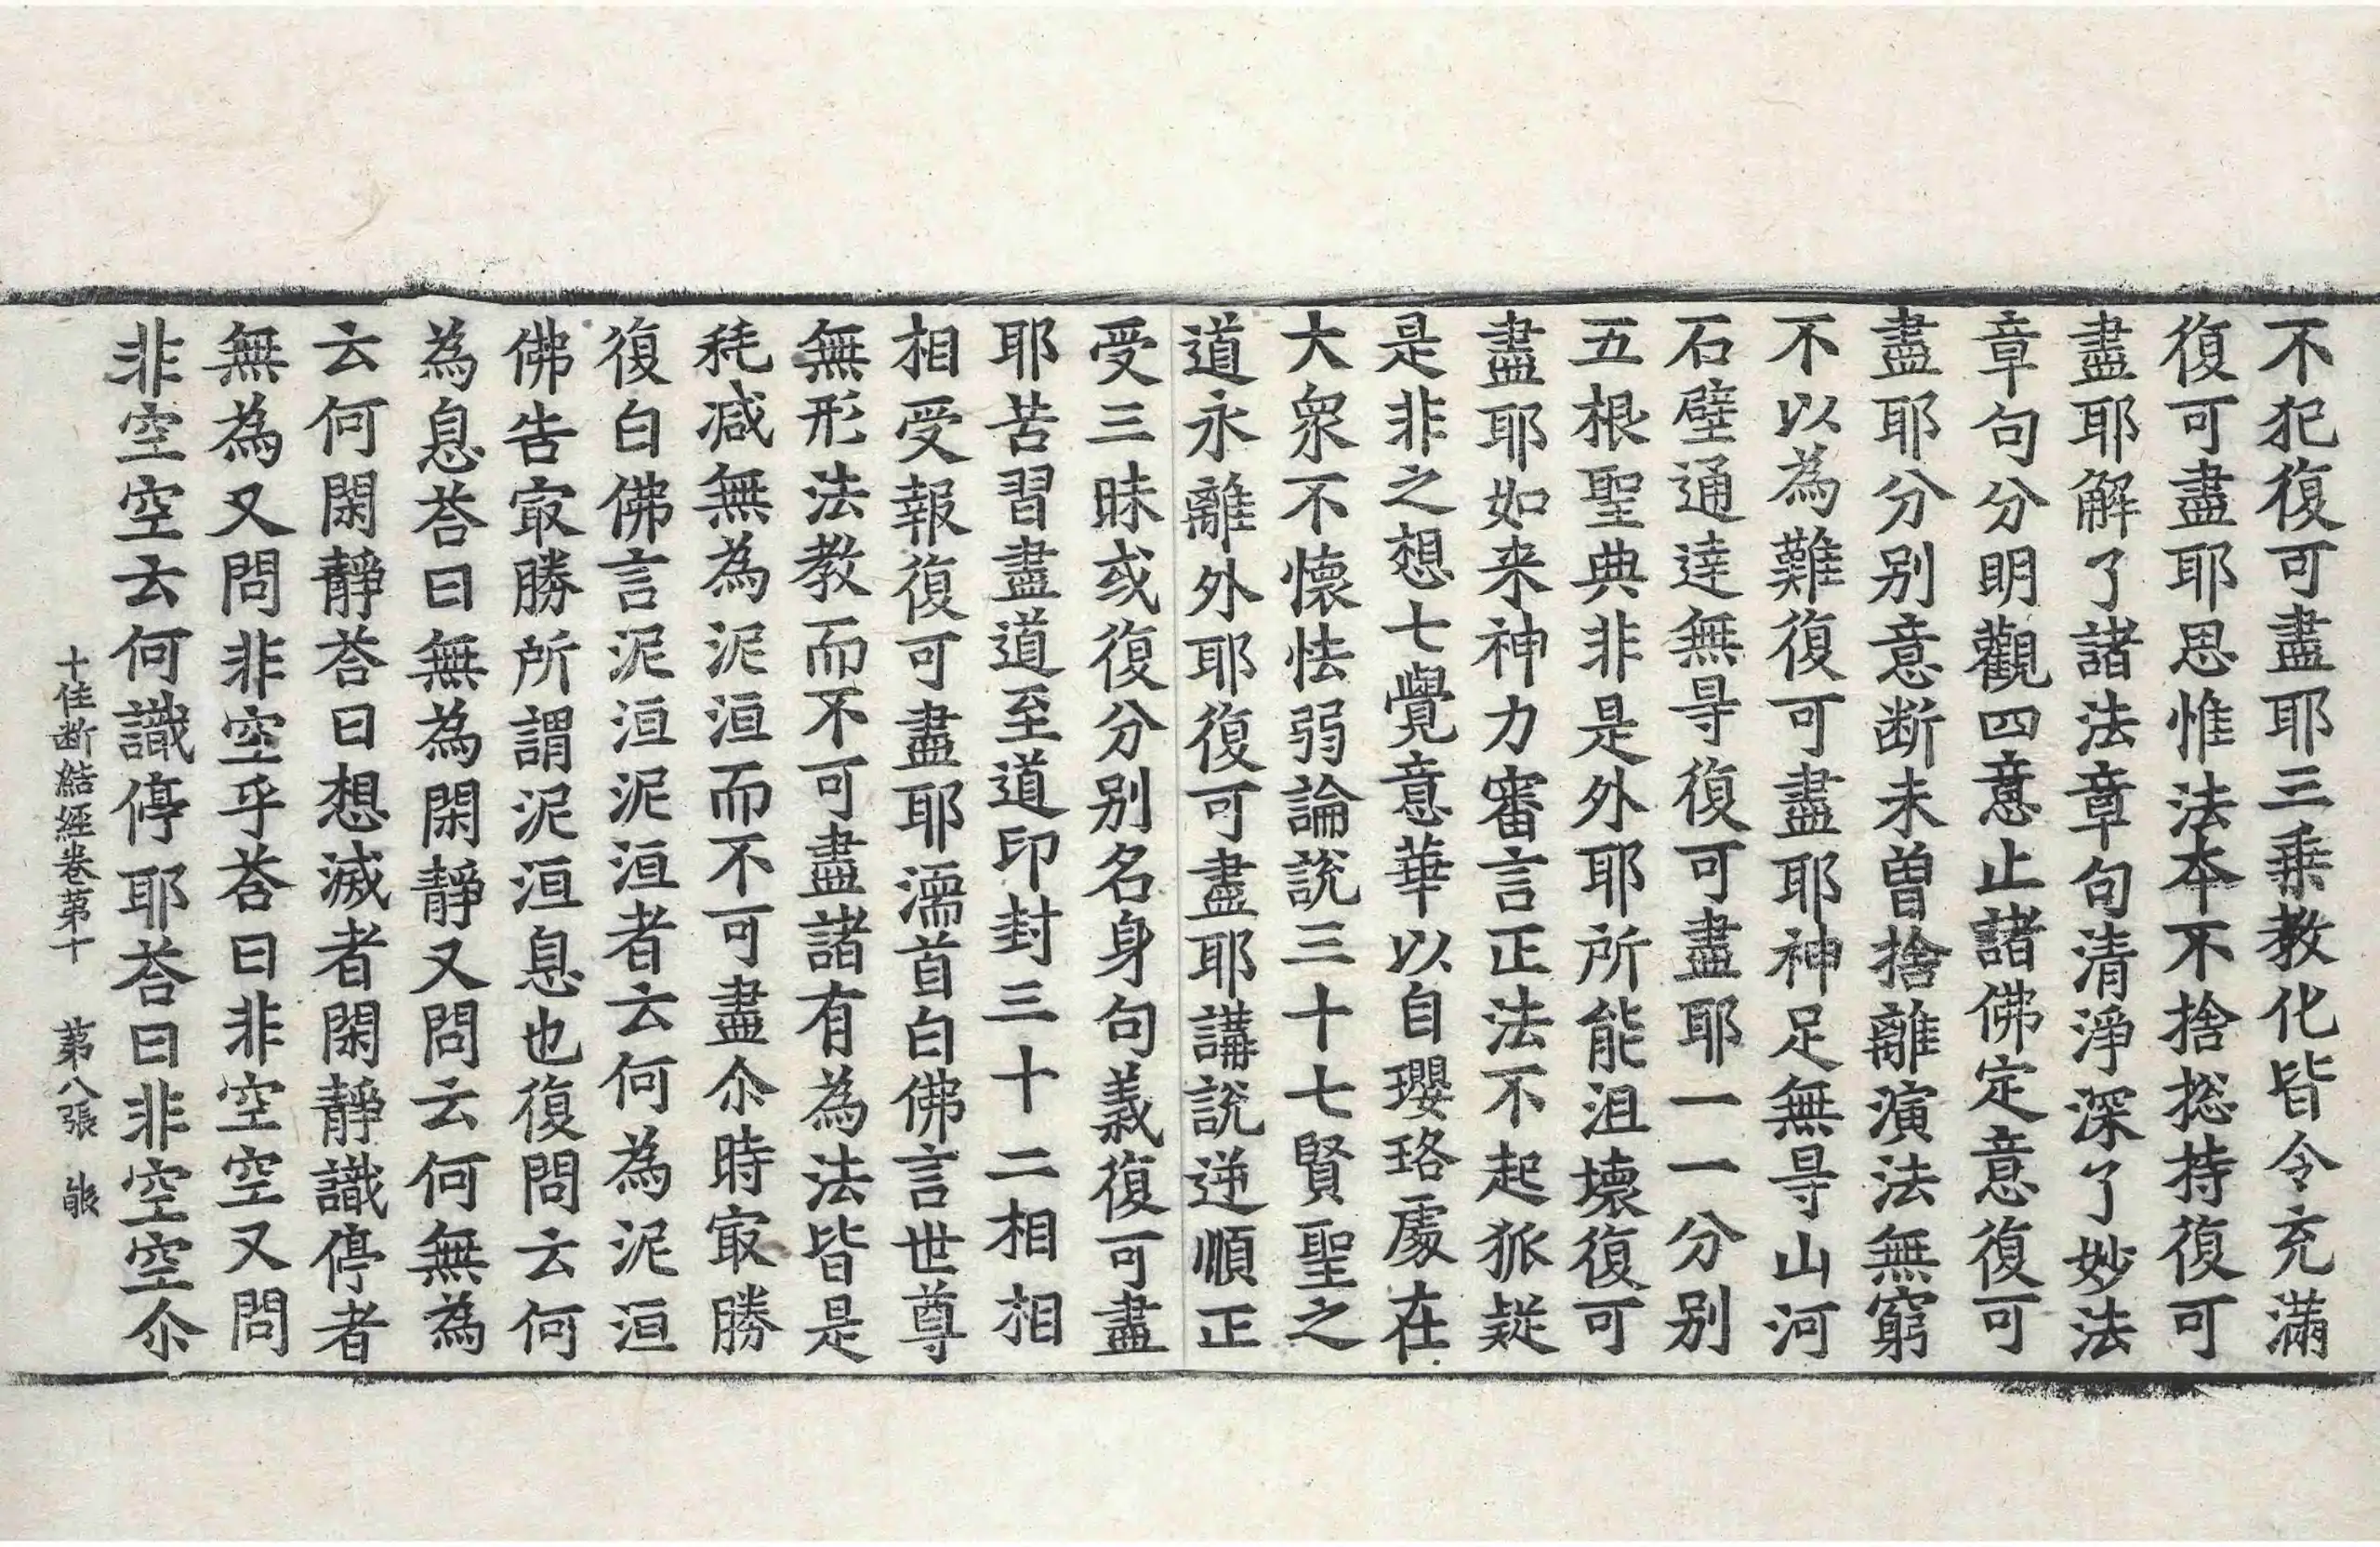 不犯復可盡耶三乗教化皆令充滿
復可盡耶思惟法夲不捨捴持復可
盡耶解了諸法章句清淨深了妙法
章句分明觀四意止諸佛定意復可
盡耶分別意断未曽捨離演法無窮
不以為難復可盡耶神足無㝵山河
石壁通達無㝵復可盡耶一一分別
五根聖典非是外耶所能沮壊復可
盡耶如来神力審言正法不起狐疑
是非之想七覺意華以自瓔珞處在
大衆不懷怯弱論說三十七賢聖之
道永離外耶復可盡耶講說逆順正
受三昧或復分別名身句義復可盡
耶苦習盡道至道印封三十二相相
相受報復可盡耶濡首白佛言世尊
無形法教而不可盡諸有為法皆是
耗减無為泥洹而不可盡尒時㝡勝
復白佛言泥洹泥洹者云何為泥洹
佛告㝡勝所謂泥洹息也復問云何
為息荅曰無為閑靜又問云何無為
云何閑靜荅曰想滅者閑靜識停者
無為又問非空乎荅曰非空空又問
非空空云何識停耶荅曰非空空尒
十住断結經卷苐十　苐八張　能